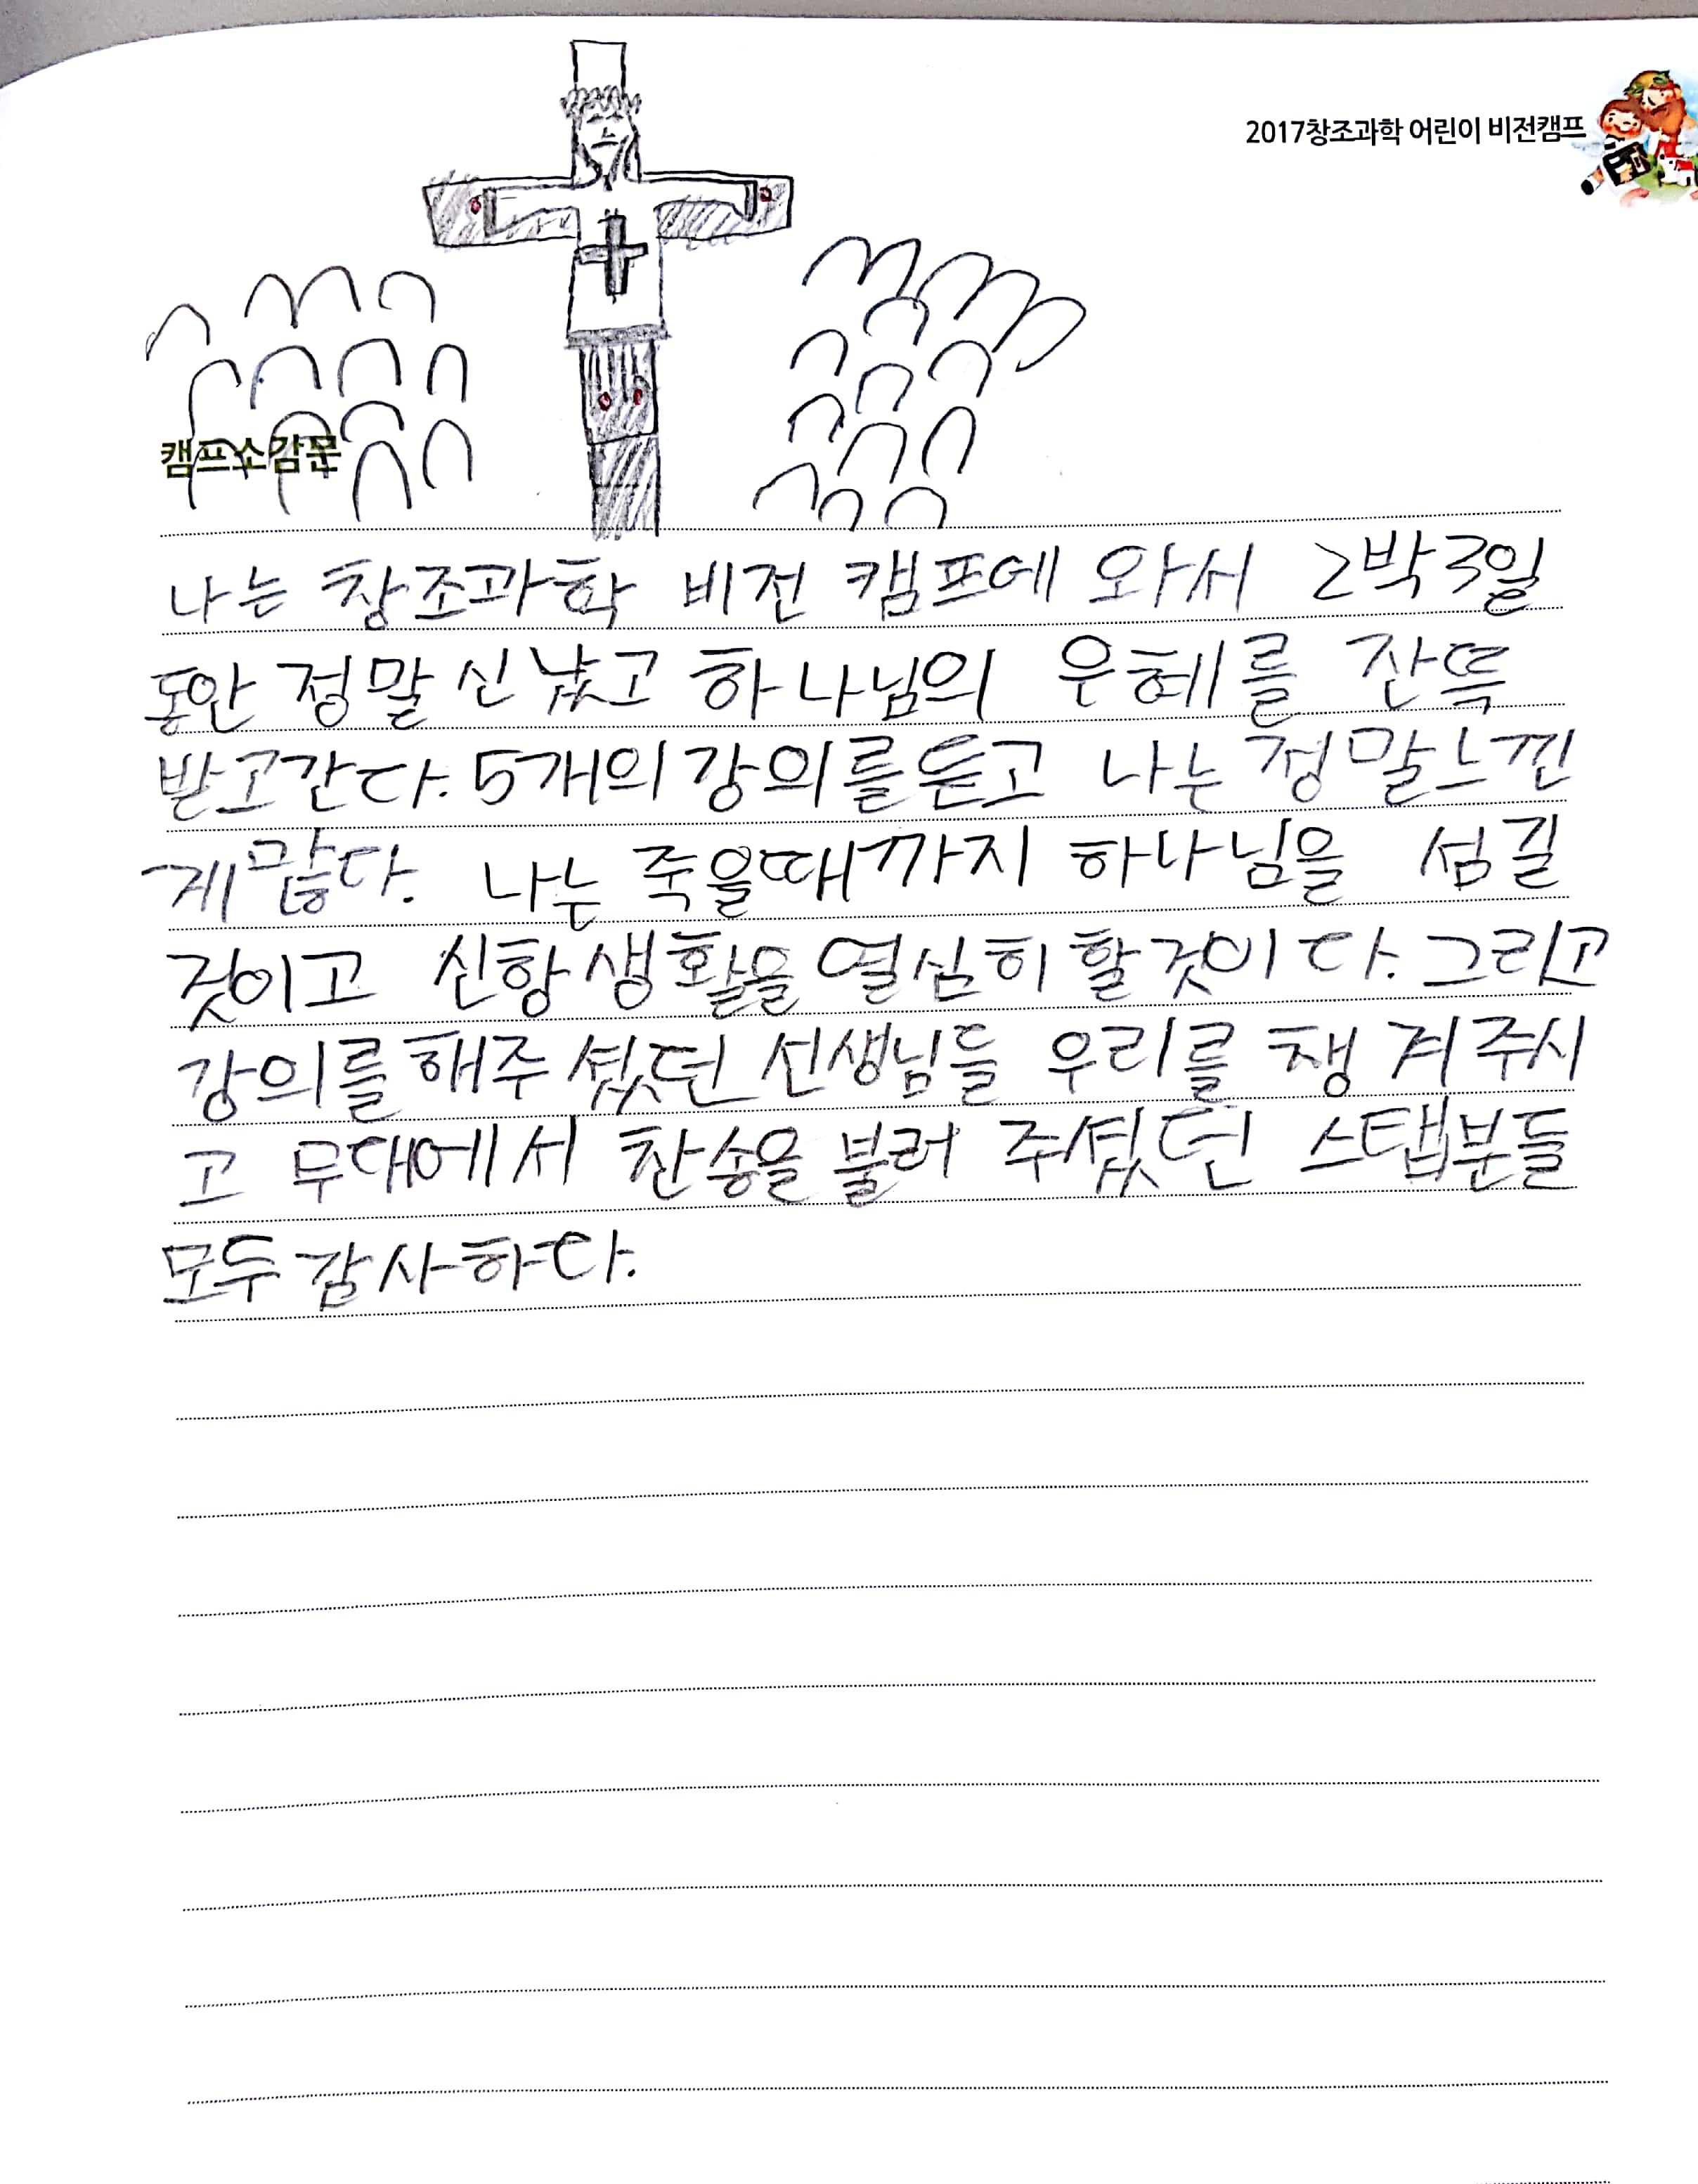 2017창조과학 어린이 비전캠프
캠프소감문
나는 창조과학 비전 캠프에 와서 2박3일
동안 정말 신났고 하나님의 은혜를 잔뜩
받고간다. 5개의 강의를 듣고 나는 정말느낀
게많다. 나는 죽을때까지 하나님을 섬길
것이고 신항생활을 열심히 할것이다. 그리고
강의를 해주셨던 선생님들 우리를 챙겨주시
고 무대에서 찬송을 불러 주셨던 스탭분들
모두감사하다.